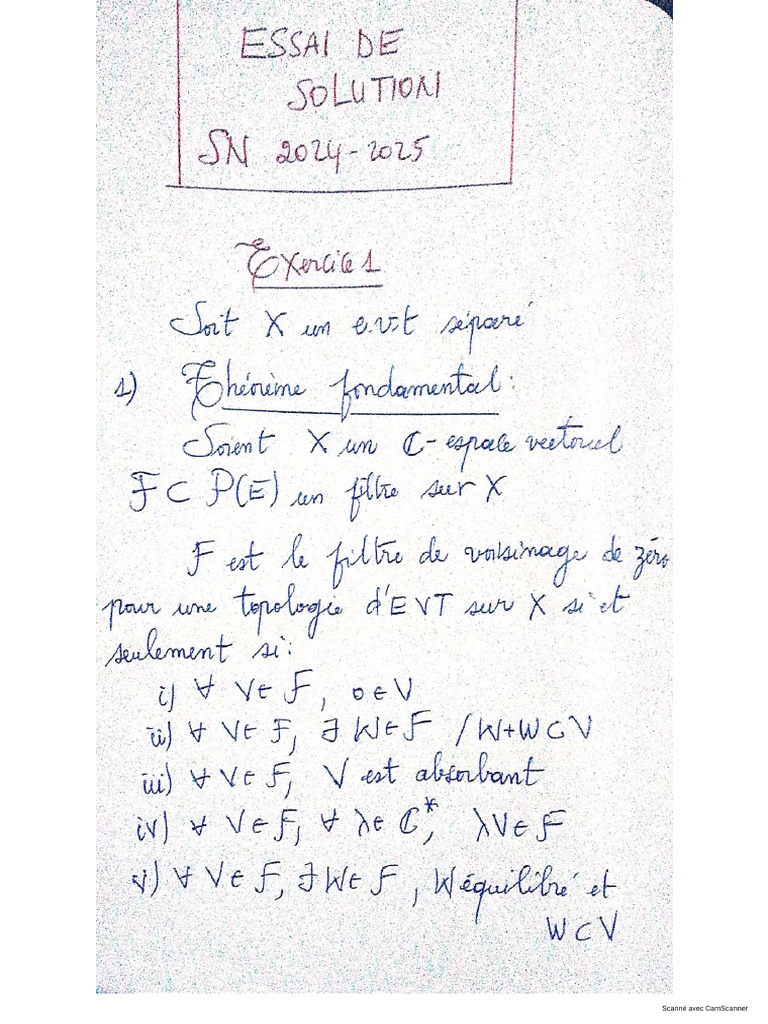 ESSAI DE
SOLUTION
SN 2024-2025
Exercice 1
Soit X un e.v.t séparé
1) Théorème fondamental:
Soient X un ℂ-espace vectoriel
F ⊂ P(E) un filtre sur X
F est le filtre de voisinage de zéro
pour une topologie d'EVT sur X si et
seulement si:
i) ∀ V∈ F, 0∈V
ii) ∀ V∈ F, ∃ W∈F / W+W⊂V
iii) ∀ V∈ F, V est absorbant
iv) ∀ V∈F, ∀ λ∈ ℂ*, λV∈F
v) ∀ V∈ F, ∃ W∈ F, W équilibré et
W⊂V
Scanné avec CamScanner